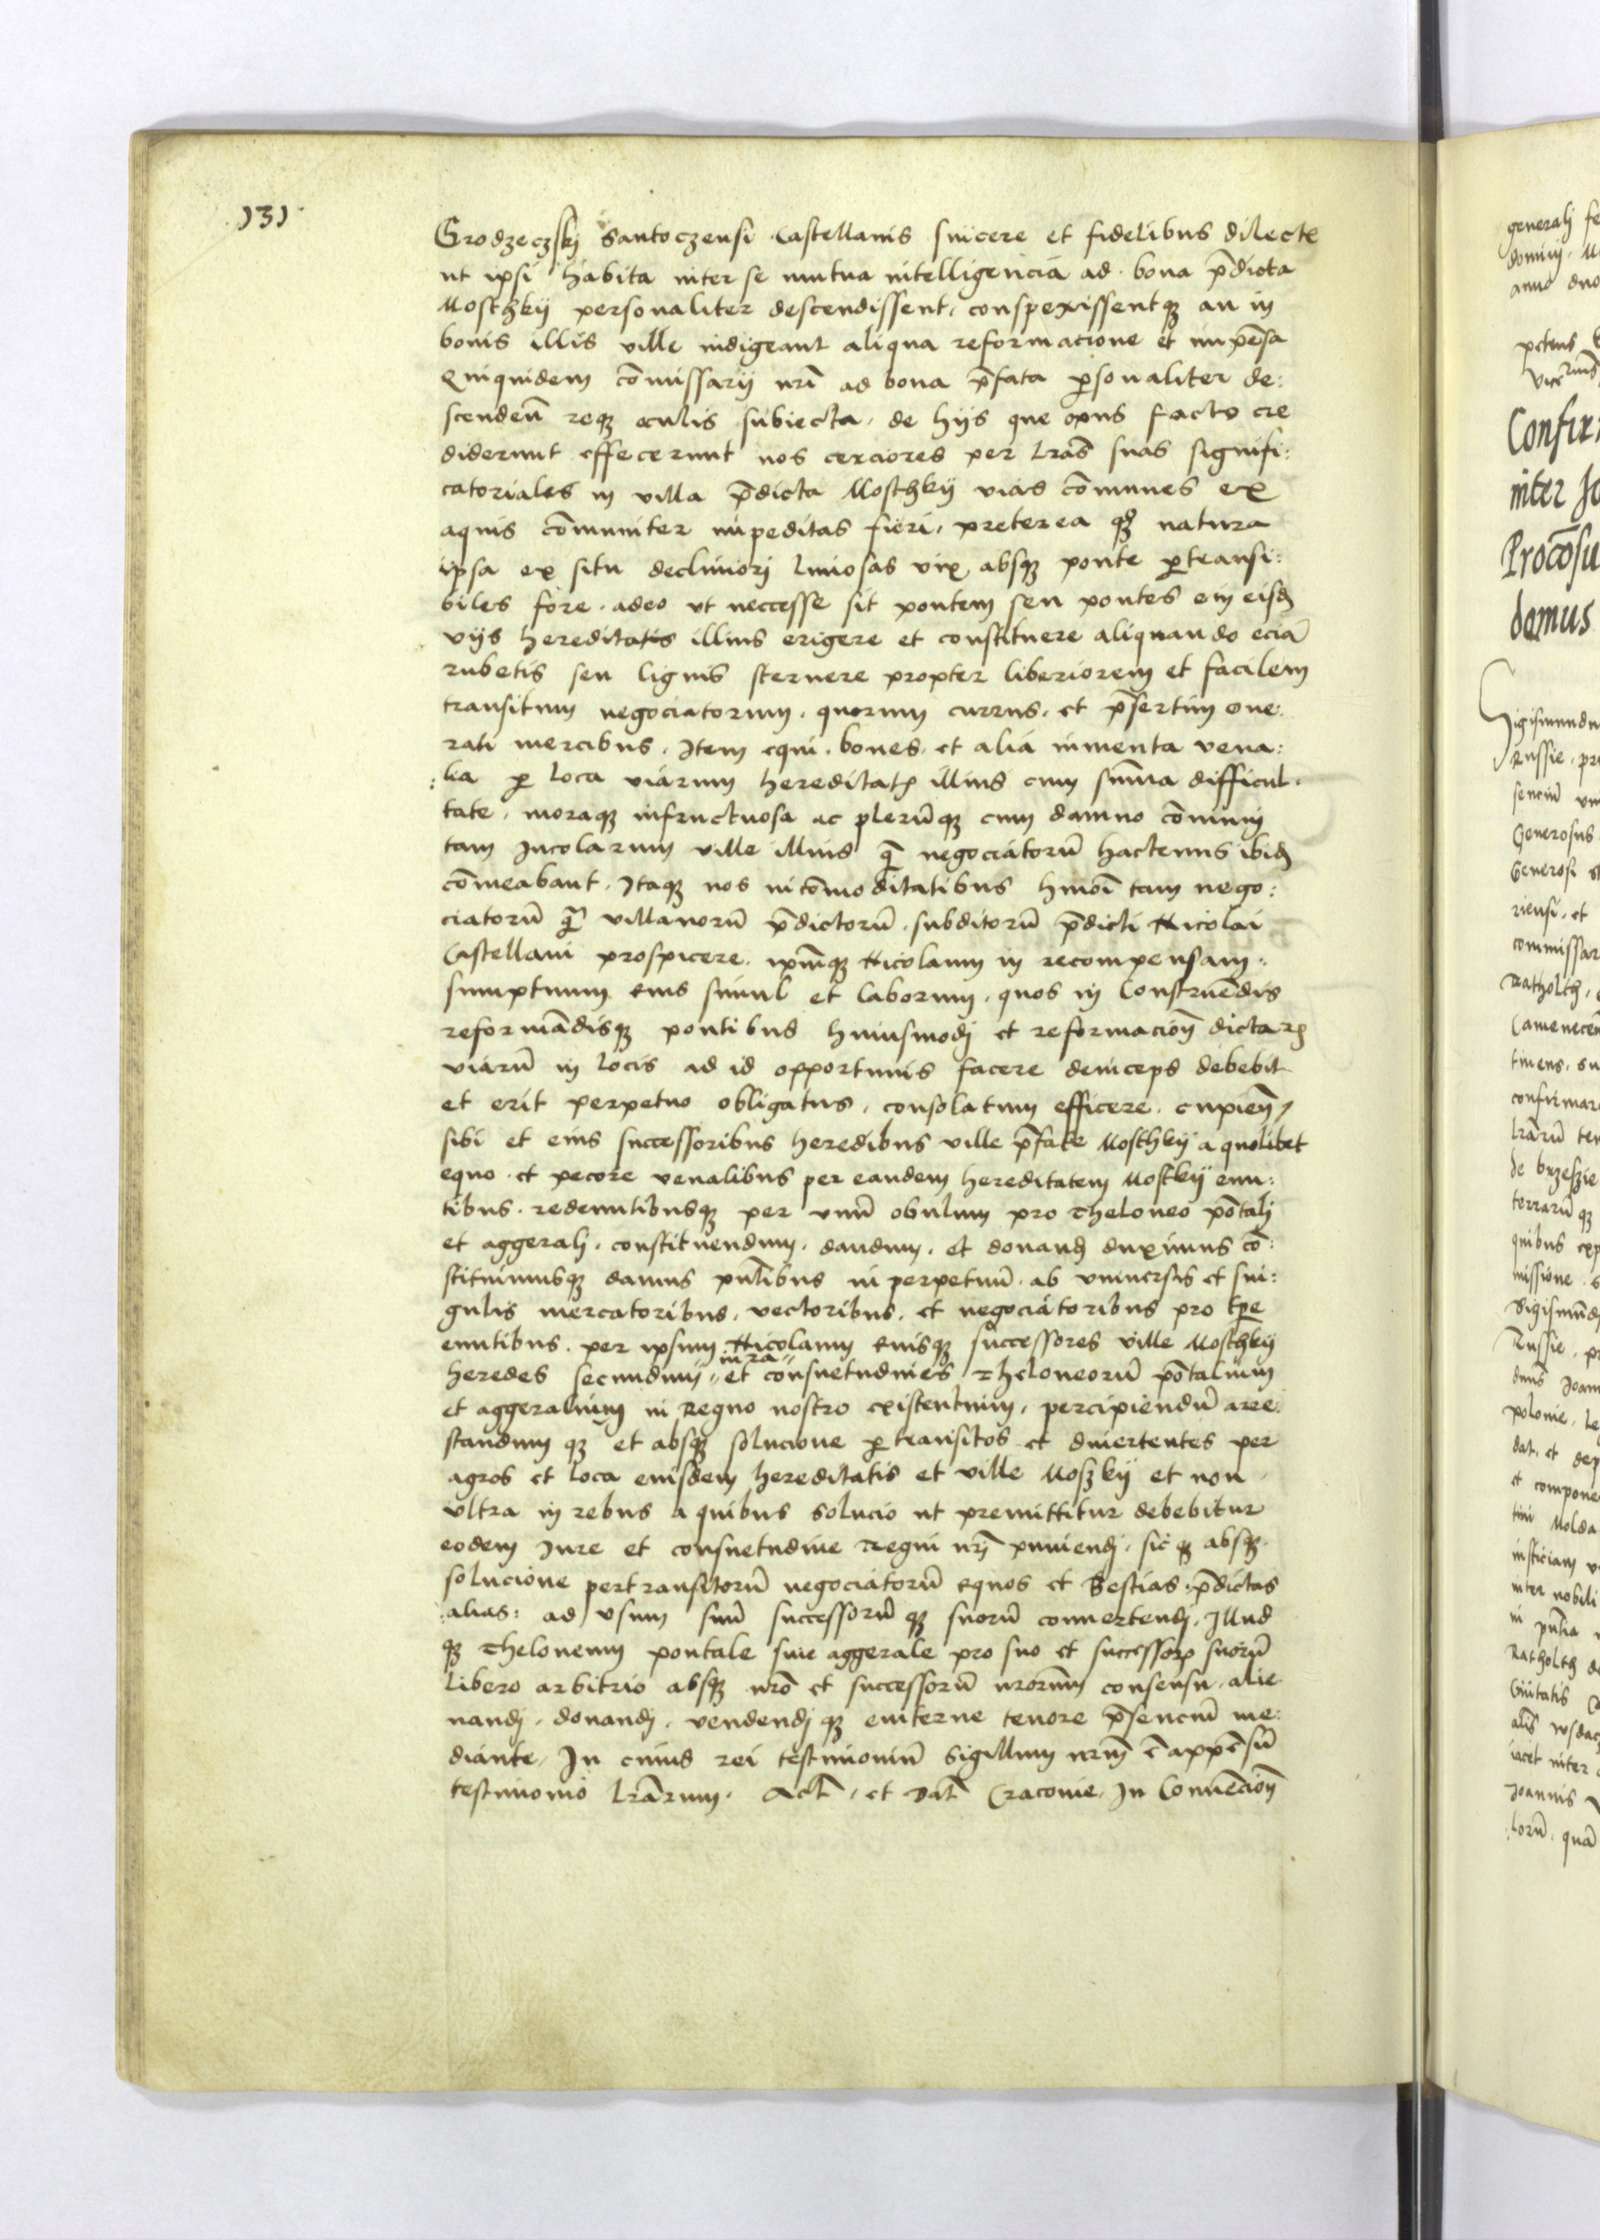 131.
Grodzeczskj Santoczensi Castellanis sincere et fidelibus dilecte
ut ipsi habita inter se mutua intelligencia ad bona p̄dicta
Moschkij personaliter descendissent, conspexissentqꝫ an in
bonis illis ville indigeant aliqua reformacione et impēsa
Quiquidem cōmissarij nr̄i ad bona p̄fata ꝑsonaliter de:
scenden̄ reqꝫ oculis subiecta, de hijs que opus facto cre
diderunt effecerunt nos cerciores per lr̄as suas signifi:
catoriales in villa p̄dicta Moschkij vias cōmunes ex
aquis cōmuniter impeditas fieri, preterea qꝫ natura
ipsa ex situ decliviorj limosas vix absqꝫ ponte ꝑtransi:
biles fore. adeo ut neccesse sit pontem seu pontes in eisdꝫ
vijs hereditatis illius erigere et constituere aliquando eciā
rubetis seu lignis sternere propter liberiorem et facilem
transitum negociatorum. quorum currus, et p̄sertim one:
rati mercibus. Item equi. boues. et alia iumenta vena:
:lia ꝑ loca viarum hereditatꝭ illius cum sum̄a difficul:
tate, moraqꝫ infructuosa ac plerūqꝫ cum damno cōmuni
tam Incolarum ville illius qᷓ negociatorū hactenus ibidꝫ
cōmeabant. Itaqꝫ nos incōmoditatibus hmōi tam nego:
ciatorū qᷓ villanorū p̄dictorū. subditorū p̄dicti Nicolai
Castellani prospicere. ipm̄qꝫ Nicolaum in recompensam.
sumptuum eius simul et laborum. quos in Construēdis
reformādisqꝫ pontibus huiusmodj et reformacion̄ dictarꝝ
viarū in locis ad id opportunis facere deinceps debebit
et erit perpetuo obligatus, consolatum efficere. cupien̄/
sibi et eius successoribus heredibus ville p̄fate Moschkij a quolibet
equo et pecore venalibus per eandem hereditatem Mosckij eun:
tibus. redeuntibusqꝫ per vnū obulum pro Theloneo pōtalj
et aggeralj. constituendum. dandum. et donandꝫ duximus cō:
stituimusqꝫ damus pn̄tibus in perpetuū. ab vniuersis et sin:
gulis mercatoribus, vectoribus. et negociatoribus pro tꝑe
euntibus. per ipsum Nicolaum eiusqꝫ successores ville Moschkij
iura
heredes secundum et consuetudines Theloneorū pōtalium
et aggeralium in Regno nostro existentium, percipiendū arre:
standum qꝫ et absqꝫ solucione ꝑtransitos et diuertentes per
agros et loca eiusdem hereditatis et ville Moszkij et non
vltra in rebus a quibus solucio ut premittitur debebitur
eodem Iure et consuetudine Regni nr̄j puniendj. sic qꝫ absqꝫ
solucione pertransitorū negociatorū equos et Bestias p̄dictas
:alias: ad vsum suū successorū qꝫ suorū conuertendj. Illud
qꝫ Theloneum pontale siue aggerale pro suo et successorꝝ suorū
libero arbitrio absqꝫ nr̄o et successorū nrorum consensu. alie
nandj. donandj. vendendj qꝫ euiterne tenore p̄senciū me:
diante, In cuius rei testimoniū Sigillum nrm̄ ē appēsū
testimonio lr̄arum. Act̄. et Dat̄ Cracouie. In Conuēcion̄
generalj
domini.
anno
Confir
inter Jo
Procōsu
domus
Sigismundu
Russie.
Generosus
Generosi
riensi. et
commissar
Ratholth,
Camenecen̄
confirmar
lrārū ten
de brzeszie
terrarū qꝫ
quibus
missione.
Sigismūdj
Russie.
polonie.
dat. et
et compone
inter nobili
Ratholth de
Ciuitatis
iacet inter
Joannis
:lorū. quā